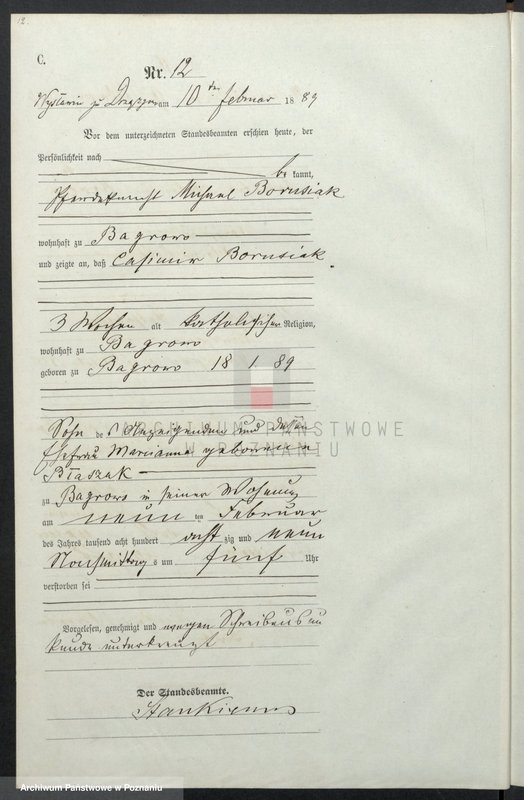 12.
C.
Nr. 12
am 10 ten Februar 1889
Vor dem unterzeichneten Standesbeamten erschien heute, der
Persönlichkeit nach
be kannt,
Pferdeknecht Michael Bornsiak
wohnhaft zu Bagrowo
und zeigte an, daß Casimir Bornsiak
3 Wochen alt katholischer Religion,
wohnhaft zu Bagrowo
geboren zu Bagrowo 18 1 89
ARCHIWUM PAŃSTWOWE
W POZNANIU
Sohn des Anzeigenden und dessen
Ehefrau Marianna geborenen
Błaszak
zu Bagrowo in seiner Wohnung
am neun ten Februar
des Jahres tausend acht hundert acht zig und neun
Nachmittags um fünf Uhr
verstorben sei
Vorgelesen, genehmigt und wegen Schreibensun
kunde unterkreuzt
Der Standesbeamte.
Archiwum Państwowe w Poznaniu